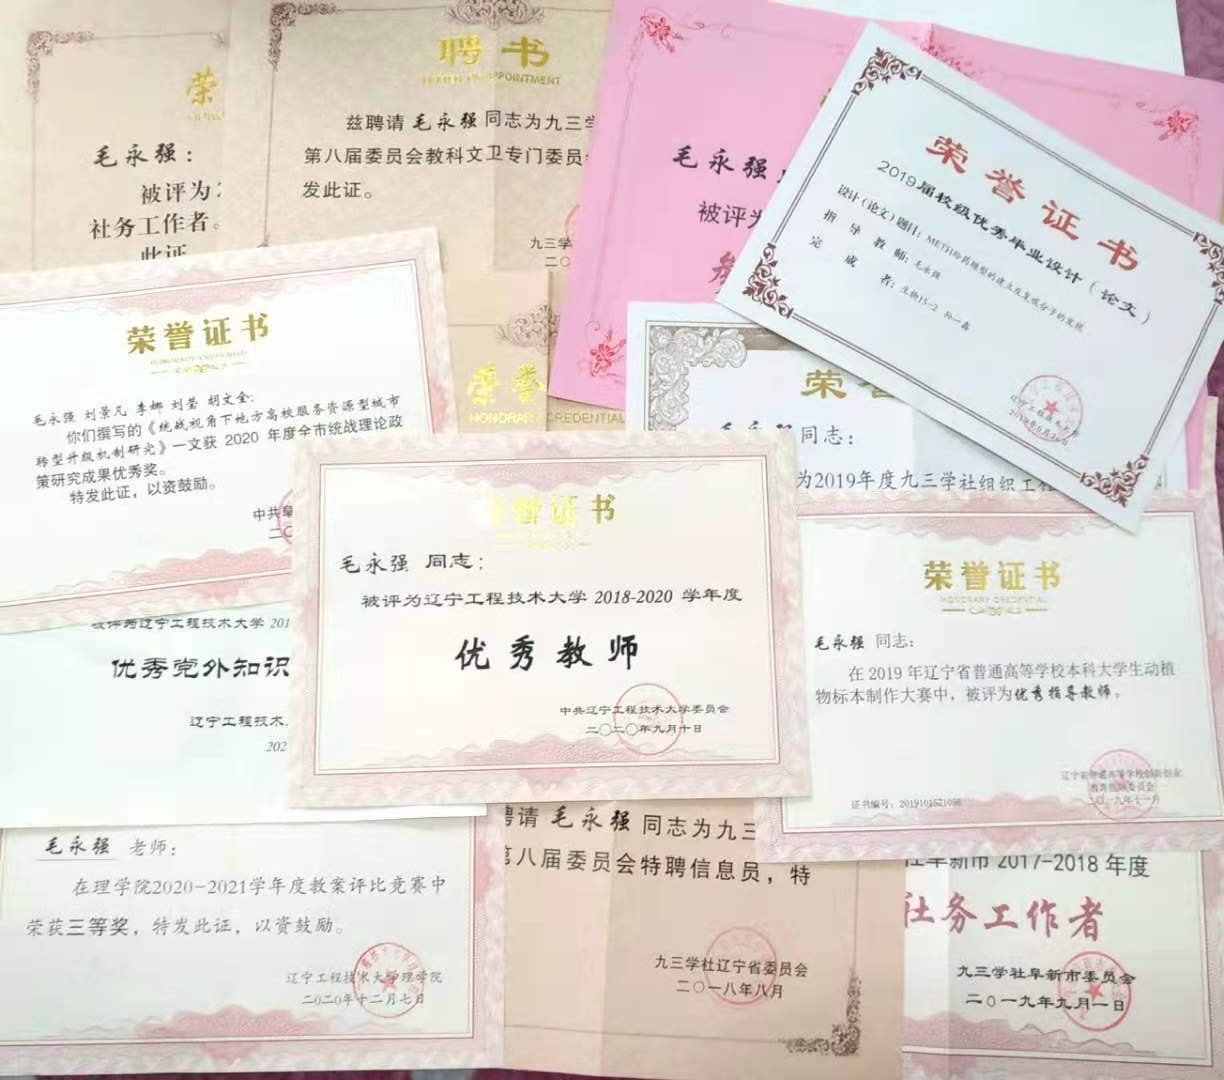 荣
毛永强：
被评为
社务工作者。
此证
聘书
APPOINTMENT
兹聘请毛永强同志为九三学
第八届委员会教科文卫专门委员
发此证。
九三学
二〇
毛永强
被评为
荣誉证书
2019届校级优秀毕业设计（论文）
设计（论文）题目：METH给药模型的建立及
指导教师：毛永强
完成者：生物15-2 孙一嘉
荣誉证书
HONORARY CREDENTIAL
毛永强 刘景凡 李娜 刘莹 胡文全：
你们撰写的《统战视角下地方高校服务资源型城市
转型升级机制研究》一文获 2020 年度全市统战理论政
策研究成果优秀奖。
特发此证，以资鼓励。
中共阜
二〇
荣誉
HONORARY CREDENTIAL
荣
毛永强同志：
为2019年度九三学社组织工
誉证书
毛永强 同志：
被评为辽宁工程技术大学 2018-2020 学年度
优秀教师
中共辽宁工程技术大学委员会
二〇二〇年九月十日
荣誉证书
HONORARY CREDENTIAL
毛永强 同志：
在 2019 年辽宁省普通高等学校本科大学生动植
物标本制作大赛中，被评为优秀指导教师。
辽宁省普通高等学校创新创业
教育指导委员会
二〇一九年十一月
证书编号：2019101521056
被评为辽宁工程技术大学 201
优秀党外知识
辽宁工程技术
202
毛永强 老师：
在理学院2020-2021学年度教案评比竞赛中
荣获三等奖，特发此证，以资鼓励。
辽宁工程技术大学理学院
二〇二〇年十二月七日
聘请 毛永强 同志为九三
第八届委员会特聘信息员，特
九三学社辽宁省委员会
二〇一八年八月
阜新市 2017-2018 年度
社务工作者
九三学社阜新市委员会
二〇一九年九月一日